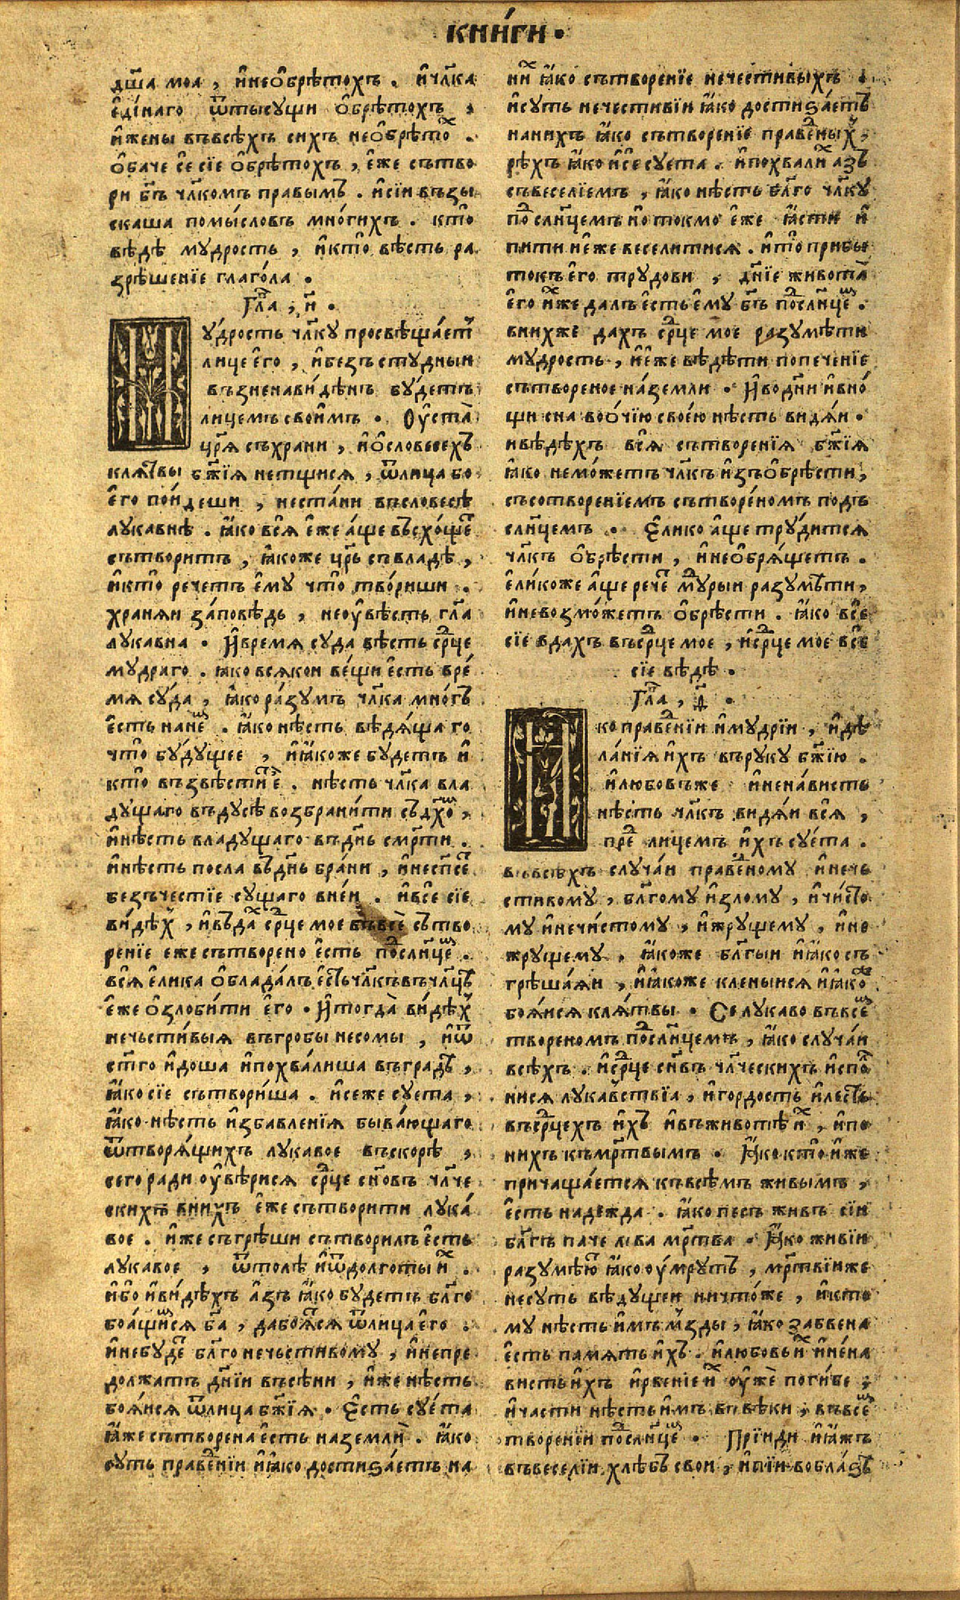 КНИ́ГИ ·
дш҃а моа , и҆необрѣтохъ . и҆чл҃ка
е҆ди́наго ѿтысущи ѻ҆брѣтохъ ,
и҆жены въвсѣхъ сихъ необрѣтоⷯ .
ѻ҆баче се сїе ѻ҆брѣтохъ , е҆же сътво
ри бг҃ъ чл҃комъ правымъ . и҆сїи възы
скаша помысловъ мно́гихъ . кто̀
вѣдѣ мудрость , и҆кто̀ вѣсть ра
зрѣшенїе глаго́ла .
Гл҃а , и҃ .
У́дрость чл҃ку просвѣща́етъ
лице е҆го , и҆безъстудныи
възненави́дѣнъ будетъ
лицемъ свои҆мъ . Оу҆ста̀
цр҃я съхрани , и҆ѻ҆словесехъ
кля́твы бж҃їя нетщися , ѿлица бо
е҆го пои́деши , неста́ни въсловесѣ
лукавнѣ . ꙗ҆ко вся е҆же а҆ще въсхо́щеⷮ
сътворитъ , ꙗ҆коже цр҃ь съвладѣ ,
и҆кто̀ речетъ е҆му что̀ тво́риши .
храняи за́повѣдь , неоу҆вѣсть гл҃а
лукавна . И҆время суда вѣсть ср҃це
мудраго . ꙗ҆ко всякои ве́щи е҆сть вре́
мя су́да , ꙗ҆ко ра́зумъ чл҃ка мно́гъ
е҆сть нанеⷨ . ꙗ҆ко нѣсть вѣдя́ща го
что̀ бу́дущее , и҆ꙗ҆коже будетъ и҆
кто̀ възвѣститъ е҆ . нѣсть чл҃ка вла
дущаго въдусѣ возбрани́ти съдх҃оⷨ ,
и҆нѣсть владущаго въдн҃ь смр҃ти .
и҆нѣсть посла въдн҃ь бра́ни , и҆неспсе́
безъче́стїе сущаго вне́и . и҆все сїе
ви́дѣⷯ , и҆въдаⷯ ср҃це мое въвсѐ сътво
ренїе еже сътворено е҆сть поⷣслн҃цеⷨ .
вся е҆лика ѻ҆блада́лъ е҆сть чл҃къ въчл҃цѣ
е҆же ѻ҆злоби́ти е҆го . И҆тогда̀ ви́дѣⷯ
нечьсти́выя въгробы несомы , и҆ѿ
ст҃го и҆доша и҆похва́лиша въградѣ ,
ꙗ҆ко сїе сътвори́ша . и҆сеже суета ,
ꙗ҆ко нѣсть и҆збавленїя быва́ющаго
ѿтворя́щихъ лукавое въскорѣ ,
сего ради оу҆вѣрися ср҃це сн҃овъ чл҃че
скихъ вни́хъ е҆же сътворити лука́
вое . и҆же съгрѣши сътворилъ е҆сть
лукавое , ѿтолѣ и҆ѿдолготы и҆ⷯ .
и҆бо и҆ви́дѣхъ а҆зъ ꙗ҆ко будетъ бл҃го
боа́щиⷨся бг҃а , дабоя́тся ѿлица е҆го .
и҆небу́деⷮ бл҃го нечьсти́вому , и҆непре
должатъ дн҃їи въсѣни , и҆же нѣсть
боя́ися ѿлица бж҃їя . Е҆сть суе́та
ꙗ҆же сътворена е҆сть наземлѝ . ꙗ҆ко
суть праве́днїи и҆ꙗ҆ко достиза́етъ на
ни́ⷯ ꙗ҆ко сътворенїе нечести́выхъ .
и҆суть нечести́вїи ꙗ҆ко достиза́етъ
нанихъ ꙗ҆ко сътворенїе праве́дныхъ ,
рѣхъ ꙗ҆ко и҆се суета . и҆похвали́ⷯ азъ
съвеселїемъ , ꙗ҆ко нѣсть бл҃го чл҃ку
поⷣ слн҃цемъ но токмо е҆же ꙗ҆сти и҆
пити и҆е҆же веселитися . и҆то̀ прибы
токъ е҆го трудови , дн҃їе живота̀
е҆го и҆ⷯже далъ е҆сть е҆му бг҃ъ поⷣслн҃цеⷨ .
внихже дахъ ср҃це мое разумѣти
мудрость , и҆е҆же вѣдѣти попеченїе
сътвореное на́земли . И҆во дн҃и и҆вно́
щи сна воо́чїю своею нѣсть видя́и .
ивѣдѣхъ вся сътворенїя бж҃їя
ꙗ҆ко немо́жетъ чл҃къ и҆зъѻ҆брѣсти ,
съсотворенїемъ сътворе́номъ подъ
слн҃цемъ . Е҆лико а҆ще тру́дится
чл҃къ ѻ҆брѣсти , и҆необря́щетъ .
е҆ли́коже а҆ще рече́ му́дрыи разумѣти ,
и҆невозмо́жетъ ѻ҆брѣсти . ꙗ҆ко все
сїе вдахъ въср҃це мое , и҆ср҃це мое все
сїе вѣдѣ .
Гл҃а , ѳ҃ .
ко праве́днїи и҆мудрїи , и҆дѣ
ла́нїя и҆хъ въруку бж҃їю .
и҆любовьже и҆нена́висть
нѣсть чл҃къ видя́и вся ,
преⷣ лицемъ и҆хъ суе́та .
въвсѣхъ случа́и праве́дному и҆нечь
стивому , бл҃гому и҆злому , и҆чи́сто
му и҆нечи́стому , и҆жрущему , и҆не
жрущему , ꙗ҆коже бл҃гыи и҆ꙗ҆ко съ
грѣша́яи , и҆ꙗ҆коже кленыися и҆ꙗ҆коⷤ
боя́ися кля́твы . Се лукаво въвсеⷨ
твореномъ поⷣслн҃цемъ , ꙗ҆ко случа́и
всѣхъ . и҆ср҃це сн҃въ чл҃ческихъ и҆спо́л
нися лука́вствїа , и҆гордость и҆лесть
въср҃цехъ и҆хъ и҆въживотѣ и҆ⷯ , и҆по
нихъ къмр҃твымъ . Ꙗ҆ко кто и҆же
прича́ща́ется къвсѣмъ живымъ ,
е҆сть надежда . ꙗ҆ко песъ живъ сїи
бл҃гъ паче льва мр҃тва . Ꙗ҆ко живїи
разумѣю́тъ ꙗ҆ко оу҆мрутъ , мр҃твїиже
несуть вѣдущеи ничто́же , и҆кто
му нѣсть и҆мъ мзды , ꙗ҆ко забвена
е҆сть память и҆хъ . и҆любовь иⷯ и҆не́на
висть и҆хъ и҆рвенїе иⷯ оу҆жѐ поги́бе ,
и҆части нѣсть и҆мъ въ вѣки , въвсеⷨ
творенїи поⷣслн҃цеⷨ . Прїиди и҆ꙗ҆жъ
въвеселїи хлѣбъ свои , и҆пїи воблазѣ